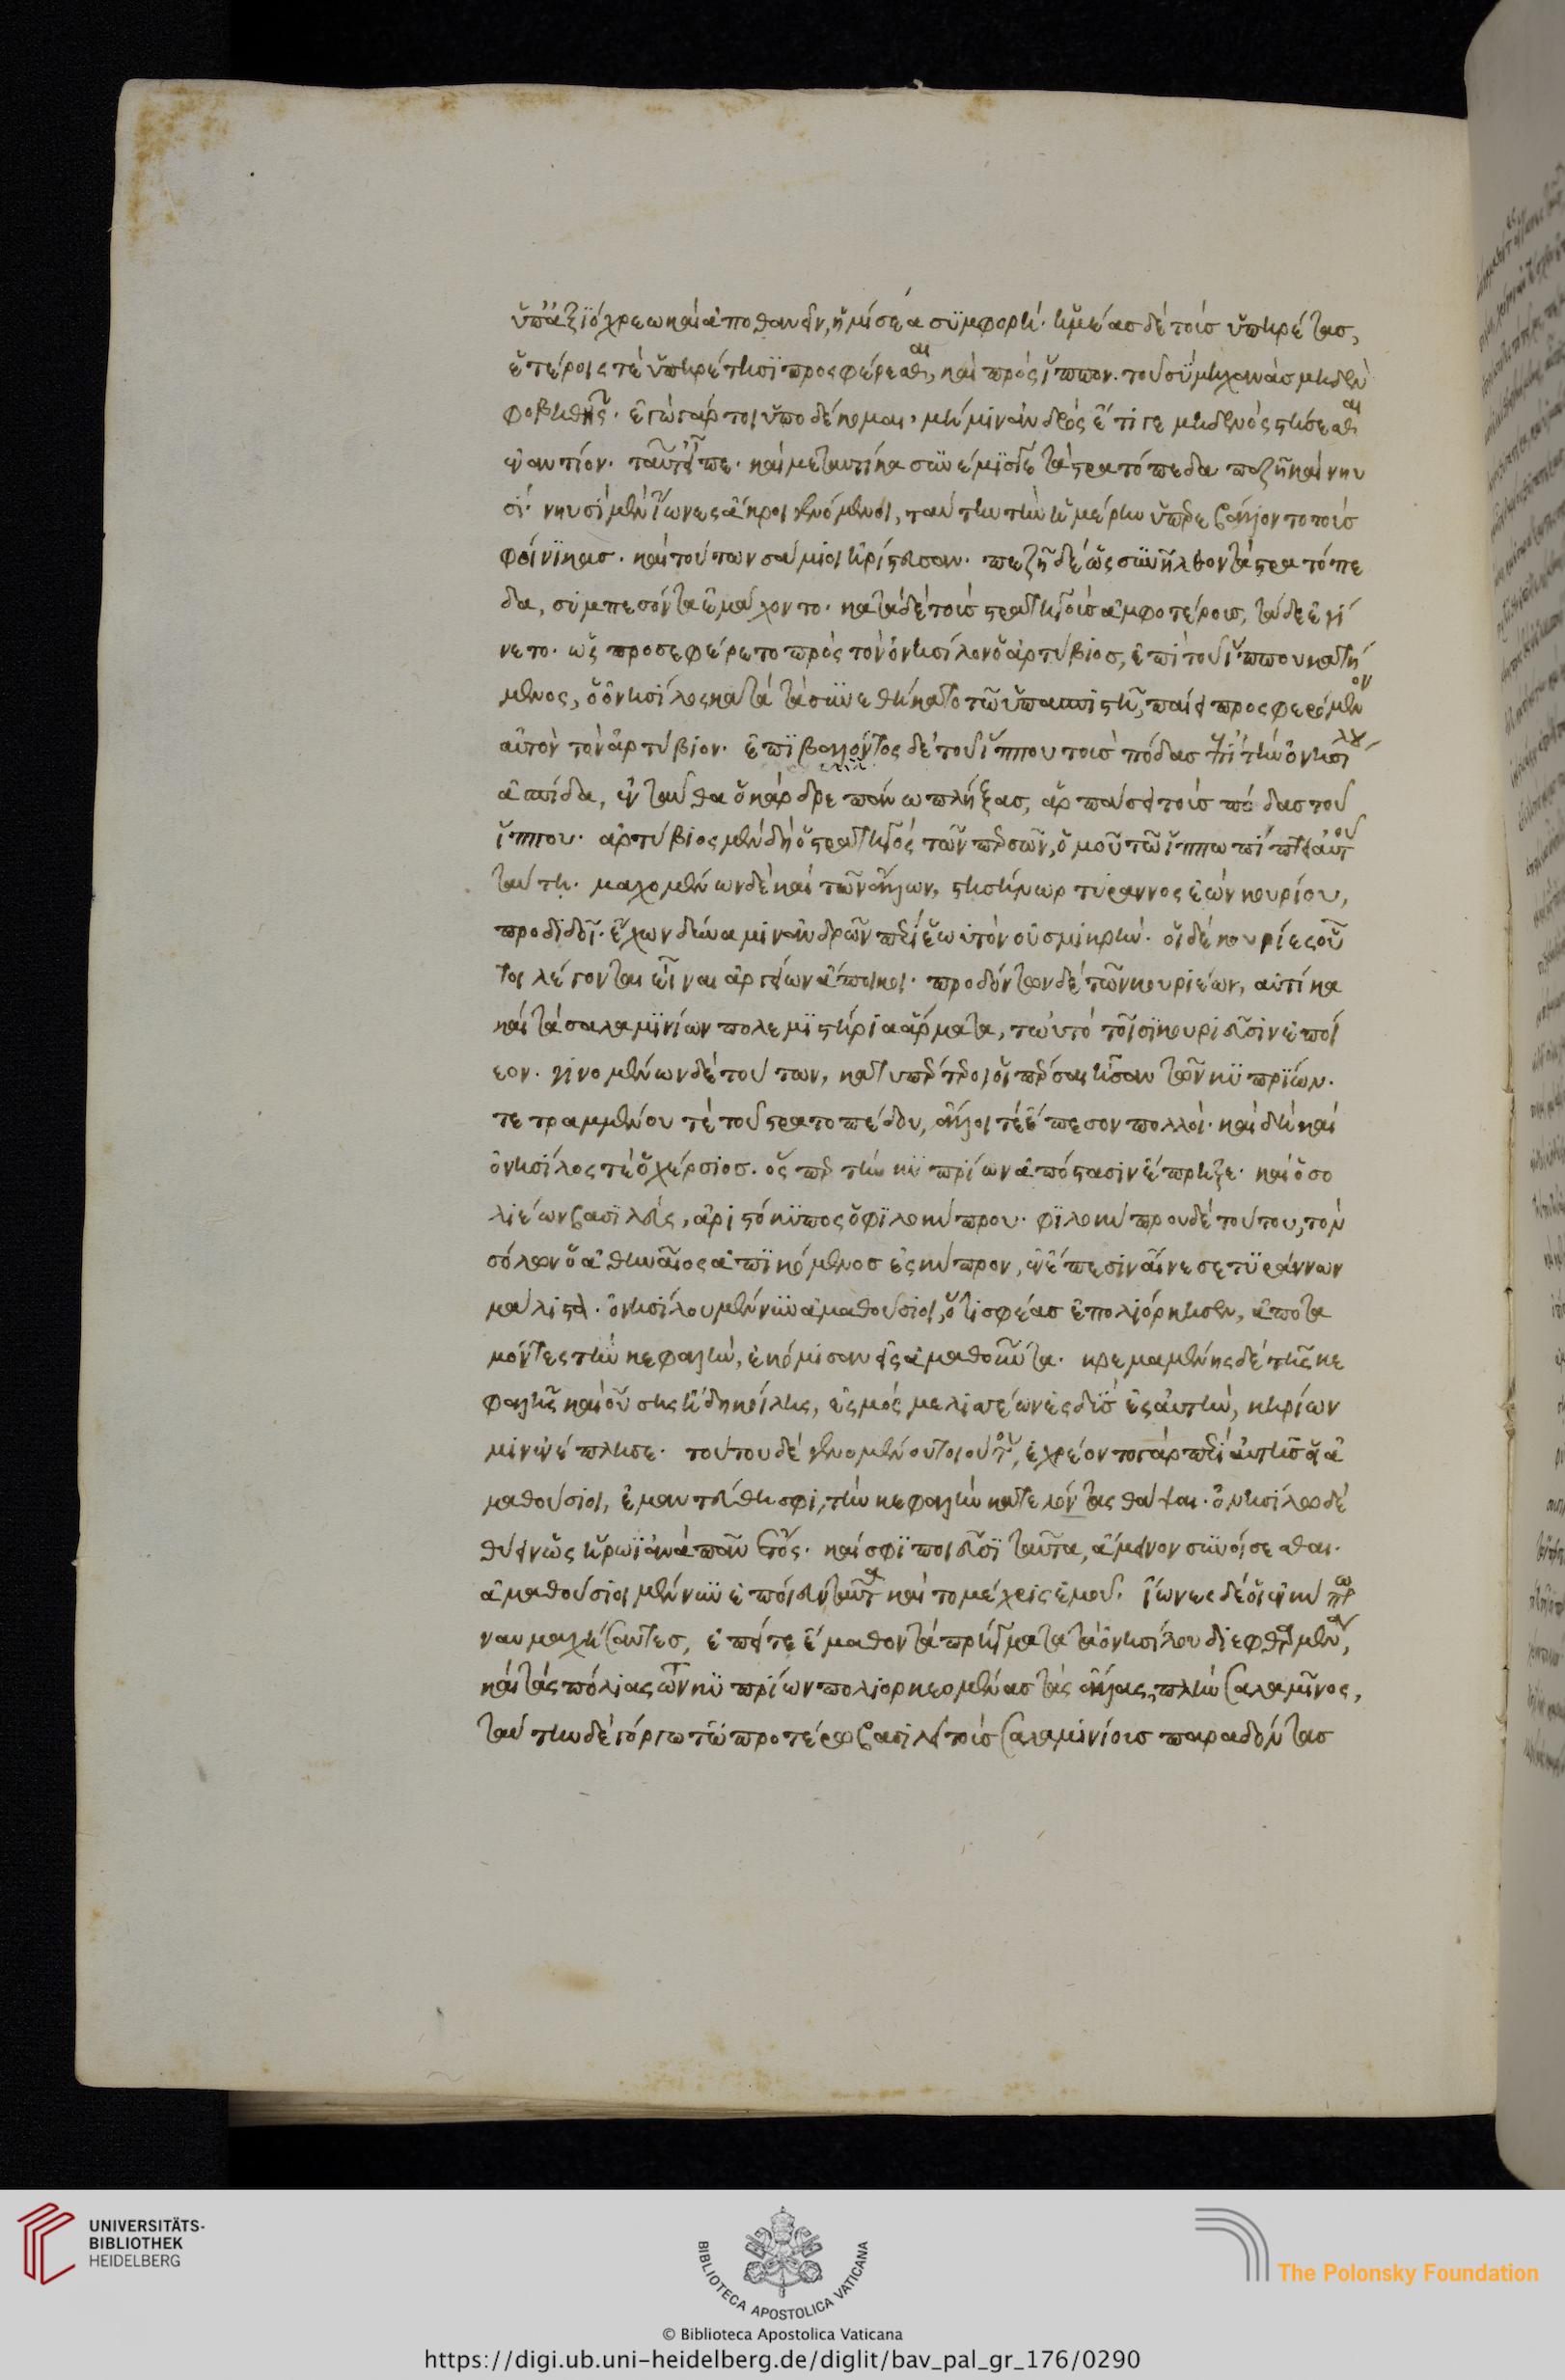 ὑπ' ἀξιόχρεω καὶ ἀποθανεῖν, ἡμίσεα συμφορή. ἡμέας δὲ τοὺς ὑπηρέτας,
ἑτέροις τὲ ὑπηρέτῃσι προσφέρεσθαι, καὶ πρὸς ἵππον. τοῦ σὺ μηχανὰς μηδὲν
φοβηθῇς. ἐγὼ γάρ τοι ὑποδέκομαι, μή μιν ἀνδρός ἔτι γε μηδενὸς στήσεσθαι
ἐναντίον. ταῦτ' εἶπε. καὶ μεταυτίκα συνέμισγε τὰ στρατόπεδα πεζῇ καὶ νηυ
σί. νηυσὶ μὲν ἴωνες ἄκροι γενόμενοι, ταύτην τὴν ἡμέρην ὑπερεβάλλοντο τοὺς
φοίνικας. καὶ τούτων σάμιοι ἠρίστευσαν. πεζῇ δὲ ὡς συνῆλθον τὰ στρατόπε
δα, συμπεσόντα ἐμάχοντο. κατὰ δὲ τοὺς στρατηγοὺς ἀμφοτέρους, τάδε ἐγί
νετο. ὡς προσεφέρετο πρὸς τὸν ὀνήσιλον ὁ ἀρτύβιος, ἐπὶ τοῦ ἵππου κατή
μενος, ὁ ὀνήσιλος κατὰ τὰ συνεθήκατο τῷ ὑπασπιστῇ, παίει προσφερόμενον
αὐτὸν τὸν ἀρτύβιον. ἐπιβαλόντος δὲ τοῦ ἵππου τοὺς πόδας ἐπὶ τὴν ὀνησίλου
ἀσπίδα, ἐνταῦθα ὁ κὰρ δρεπάνῳ πλήξας, ἀπαράσσει τοὺς πόδας τοῦ
ἵππου. ἀρτύβιος μὲν δὴ ὁ στρατηγὸς τῶν περσῶν, ὁμοῦ τῷ ἵππῳ πίπτει αὐτοῦ
ταύτῃ. μαχομένων δὲ καὶ τῶν ἄλλων, στησήνωρ τύραννος ἐὼν κουρίου,
προδιδοῖ. ἔχων δύναμιν ἀνδρῶν περὶ ἑωυτὸν οὐ σμικρήν. οἱ δὲ κουριέες οὗ
τοι λέγονται εἶναι ἀργείων ἄποικοι. προδόντων δὲ τῶν κουριέων, αὐτίκα
καὶ τὰ σαλαμινίων πολεμιστήρια ἅρματα, τὠυτὸ τοῖσι κουριεῦσιν ἐποί
εον. γινομένων δὲ τούτων, κατυπέρτεροι οἱ πέρσαι ἦσαν τῶν κυπρίων.
τετραμμένου τὲ τοῦ στρατοπέδου, ἄλλοι τὲ ἔπεσον πολλοί. καὶ δὴ καὶ
ὀνήσιλος τὲ ὁ χέρσιος. ὅς περ τὴν κυπρίων ἀπόστασιν ἔπρηξε. καὶ ὁ σο
λίων βασιλεύς, ἀριστόκυπρος ὁ φιλοκύπρου. φιλοκύπρου δὲ τούτου, τὸν
σόλων ὁ ἀθηναῖος ἀπικόμενος ἐς κύπρον, ἐν ἔπεσιν αἴνεσε τυράννων
μάλιστα. ὀνησίλου μὲν νῦν ἀμαθούσιοι, ὅτι σφέας ἐπολιόρκησεν, ἀποτα
μόντες τὴν κεφαλήν, ἐκόμισαν εἰς ἀμαθοῦντα. κρεμαμένης δὲ τῆς κε
φαλῆς καὶ οὔσης ἤδη κοίλης, ἑσμὸς μελισσέων ἐσδὺς ἐς αὐτήν, κηρίων
μιν ἐνέπλησε. τούτου δὲ γενομένου τοιούτου, ἐχρέοντο γὰρ περὶ αὐτῆς οἱ ἀ
μαθούσιοι, ἐμαντεύθη σφι, τὴν κεφαλὴν κατελόντας θάψαι. ὀνησίλῳ δὲ
θύειν ὡς ἥρωι ἀνὰ πᾶν ἔτος. καί σφι ποιεῦσι ταῦτα, ἄμεινον συνοίσεσθαι.
ἀμαθούσιοι μέν νυν ἐποίευν ταῦτα καὶ τὸ μέχρις ἐμοῦ. ἴωνες δὲ οἱ ἐν κύπρῳ
ναυμαχήσαντες, ἐπείτε ἔμαθον τὰ πρήγματα τὰ ὀνησίλου διεφθαρμένα,
καὶ τὰς πόλιας τῶν κυπρίων πολιορκεομένας τὰς ἄλλας, πλὴν σαλαμῖνος,
ταύτην δὲ γόργῳ τῷ προτέρῳ βασιλεῖ τοὺς σαλαμινίους παραδόντας
UNIVERSITÄTS-
BIBLIOTHEK
HEIDELBERG
BIBLIOTECA APOSTOLICA VATICANA
The Polonsky Foundation
© Biblioteca Apostolica Vaticana
https://digi.ub.uni-heidelberg.de/diglit/bav_pal_gr_176/0290